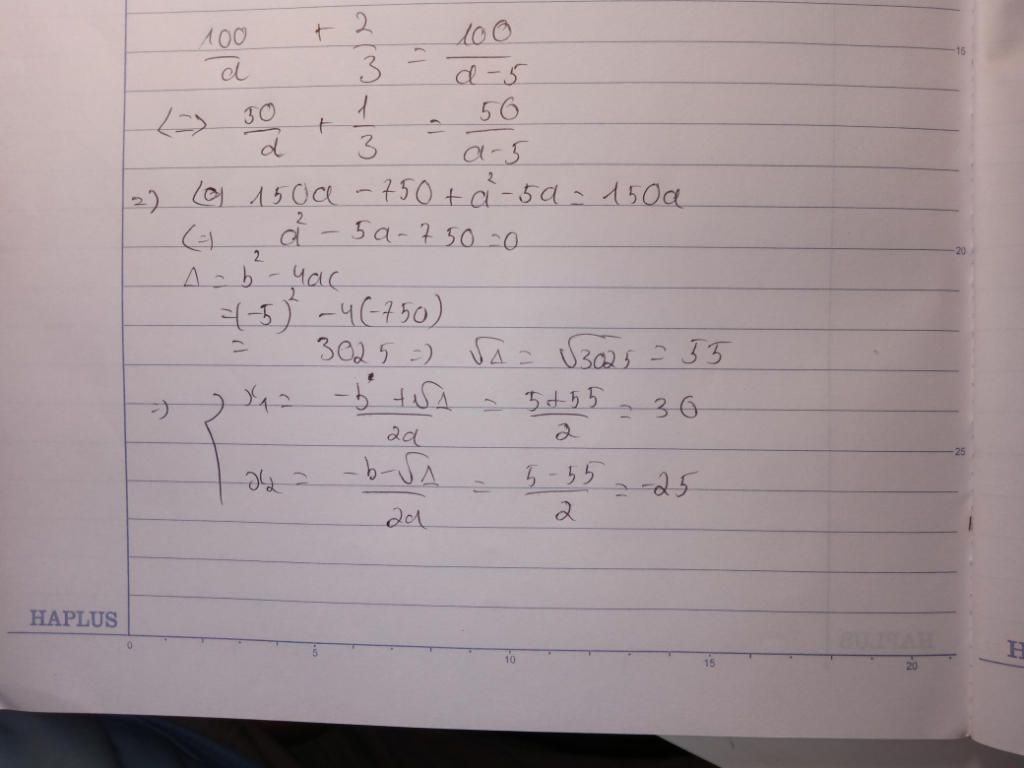 100/a + 2/3 = 100/(a-5) 15
<=> 50/a + 1/3 = 50/(a-5)
=) 150a - 750 + a² - 5a = 150a
(=) a² - 5a - 750 = 0 20
Δ = b² - 4ac
= (-5)² - 4(-750)
= 3025 =) √Δ = √3025 = 55
=) { x₁ = (-b + √Δ)/2a = (5+55)/2 = 30
25
x₂ = (-b - √Δ)/2a = (5-55)/2 = -25
HAPLUS HAPLUS H
0 5 10 15 20